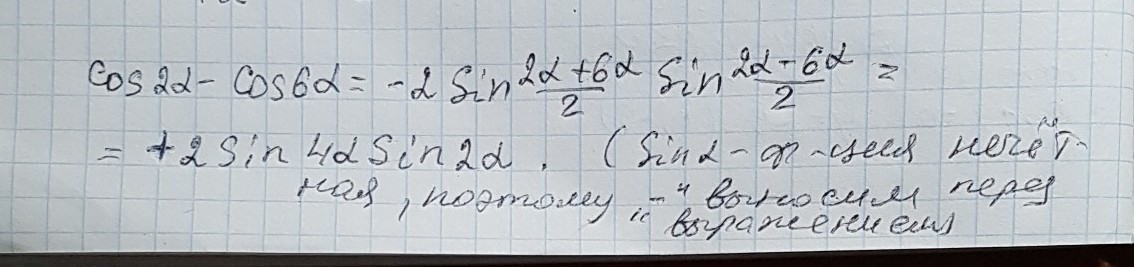 cos2α - cos6α = -2 sin (2α+6α)/2 sin (2α-6α)/2 =
= +2 sin 4α sin 2α. (sinα - ф-ция нечёт-
ная, поэтому „-“ выносим перед
выражением)